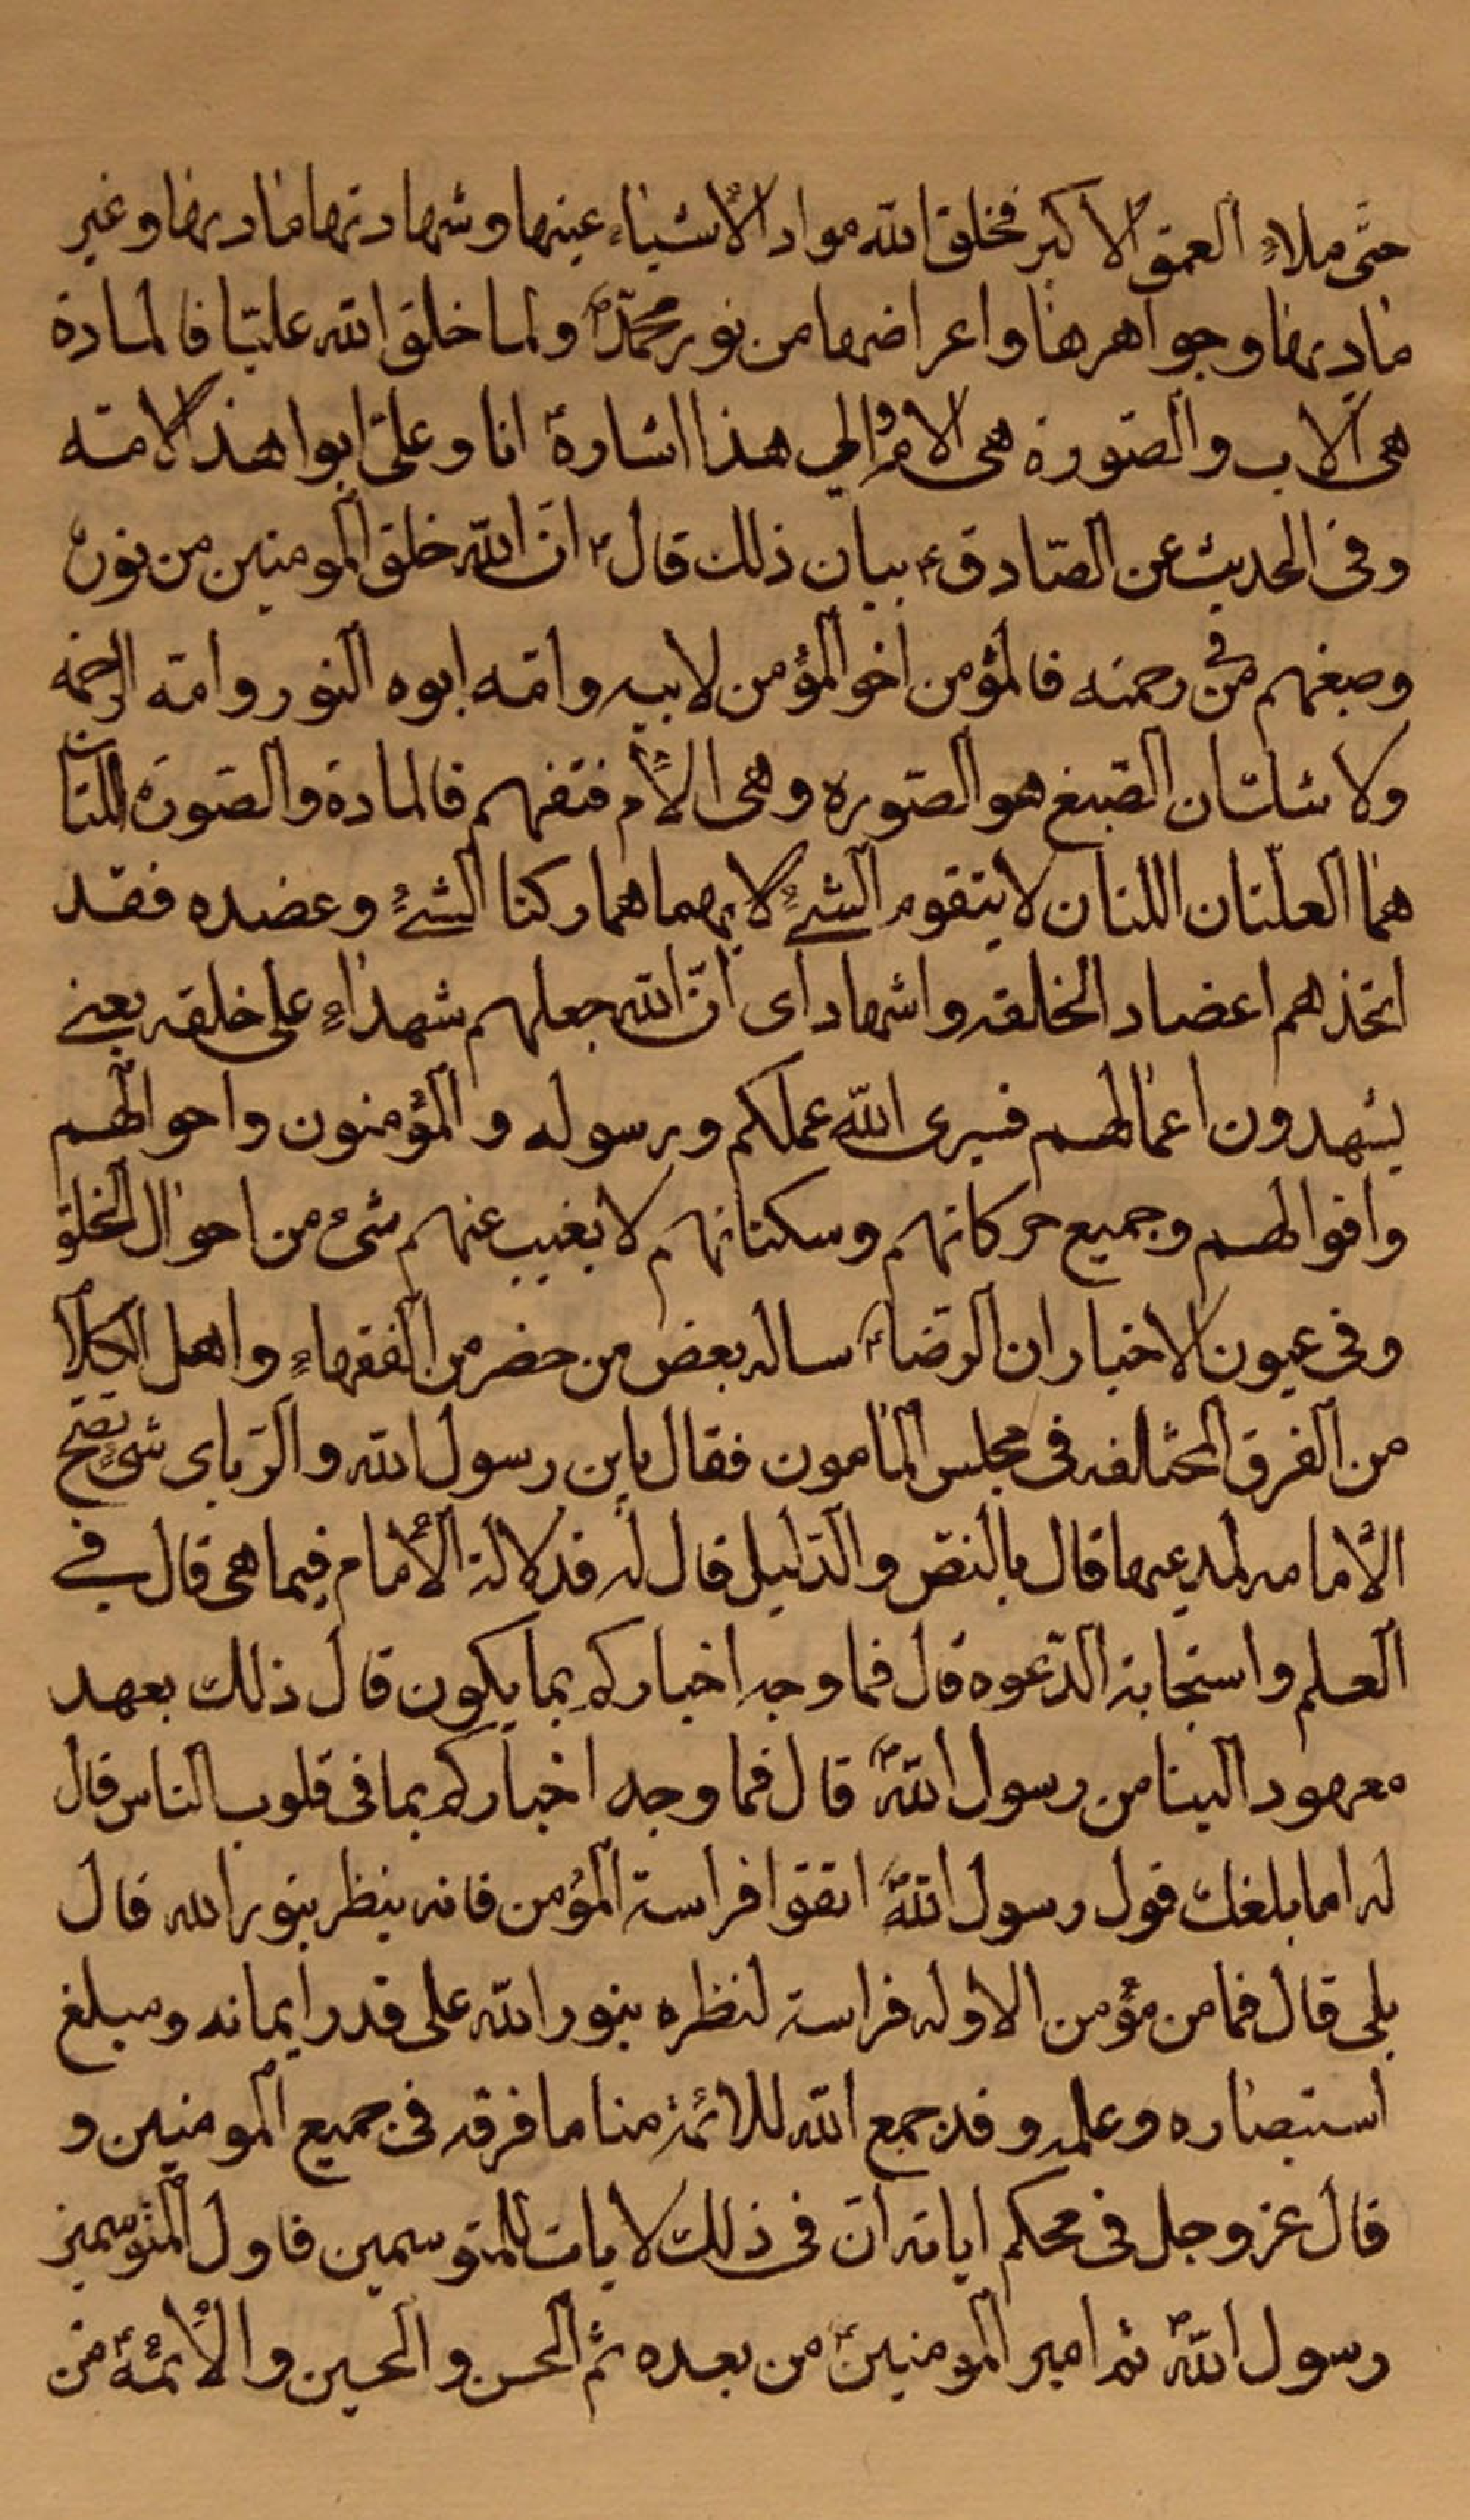 حتی ملاء العمق الاکبر فخلق الله مواد الأشیاء عینها وشهادتها مادیها وغیر
مادیها وجواهرها واعراضها من نور محمّدؐ ولما خلق الله علیّا فالمادة
هی الأب والصّورة هی الامّ والی هذا اشارة انا وعلیّ ابوا هذ الامّه
وفی الحدیث عن الصّادقؑ بیان ذلك قالؑ انّ الله خلق المومنین من نوره
وصبغهم فی رحمته فالمؤمن اخو المؤمن لابیه وامّه ابوه النور وامّه الرحمة
ولا شك ان الصّبغ هو الصّوره وهی الأمّ فتفهم فالمادة والصّورة اللتان
هما العلّتان اللتان لا یتقوم الشیٔ الا بهما هما رکنا الشیٔ وعضده فقد
اتخذهم اعضاد الخلقه واشهاد ای انّ الله جعلهم شهداء علی خلقه یعنی
یشهدون اعمالهم فسیری الله عملکم ورسوله والمؤمنون واحوالهم
واقوالهم وجمیع حرکاتهم وسکناتهم لا یغیب عنهم شیٔ من احوال الخلق
وفی عیون الاخبار ان الرّضاؑ ساله بعض من حضر من الفقهاء واهل الکلام
من الفرق المختلفه فی مجلس المامون فقال یابن رسول الله والرّبای شیٔ تصح
الأمامه لمدعیها قال بالنصّ والدّلیل قال له فدلالة الأمام فیما هی قال فی
العلم واستجابة الدّعوه قال فما وجه اخبارکم بما یکون قال ذلك بعهد
معهود الینا من رسول اللهؐ قال فما وجه اخبارکم بما فی قلوب الناس قال
له اما بلغك قول رسول اللهؐ اتقوا فراسة المؤمن فانه ینظر بنور الله قال
بلی قال فما من مؤمن الا وله فراسة لنظره بنور الله علی قدر ایمانه ومبلغ
استبصاره وعلمه وقد جمع الله للائمة منا ما فرقه فی جمیع المومنین و
قال عز وجل فی محکم ایاته انّ فی ذلك لایات للمتوسمین فاول المتوسمین
رسول اللهؐ ثم امیر المومنینؑ من بعده ثمّ الحسن والحسین والأئمّةؑ من